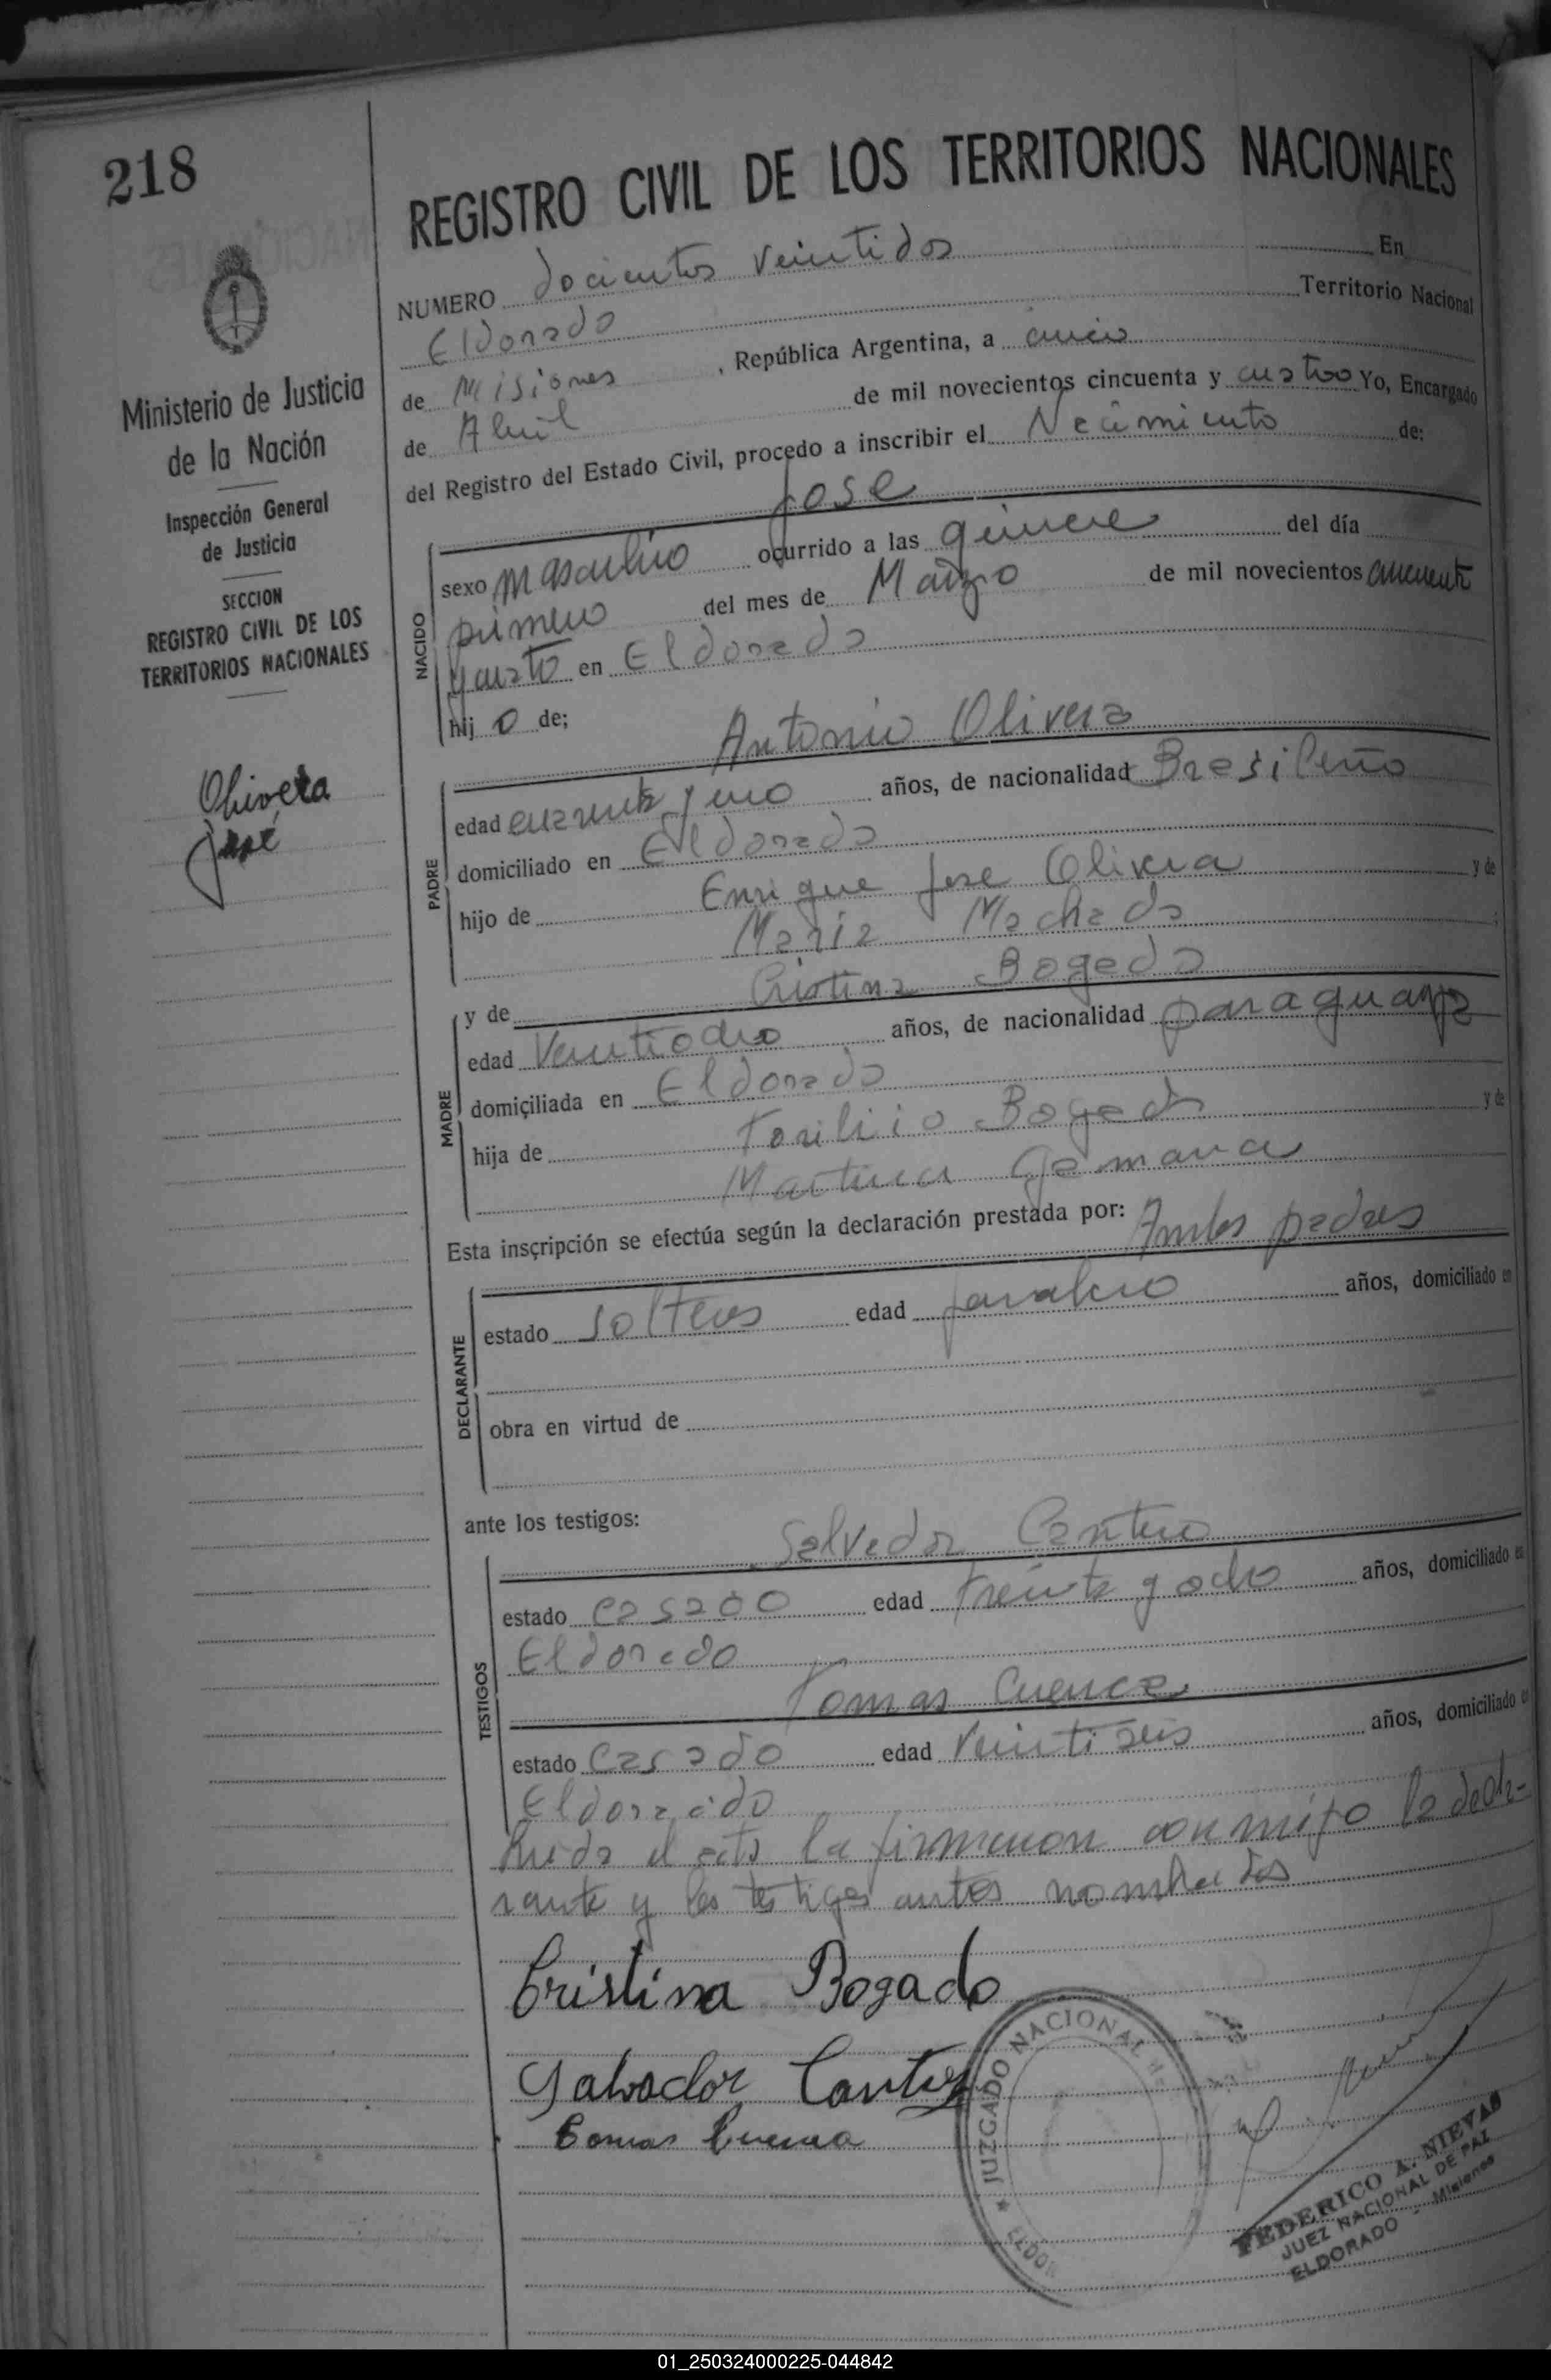 218
REGISTRO CIVIL DE LOS TERRITORIOS NACIONALES
NUMERO docientos veintidos En
Eldorado Territorio Nacional
de Misiones, República Argentina, a cinco
de Abril de mil novecientos cincuenta y cuatro Yo, Encargado
del Registro del Estado Civil, procedo a inscribir el Nacimiento de:
Ministerio de Justicia
de la Nación
Inspección General
de Justicia
SECCION
REGISTRO CIVIL DE LOS
TERRITORIOS NACIONALES
Olivera
José
NACIDO
Jose
sexo masculino ocurrido a las quince del día
primero del mes de Marzo de mil novecientos cincuenta
y cuatro en Eldorado
hijo de;
PADRE
Antonio Olivera
edad cuarenta y uno años, de nacionalidad Brasileño
domiciliado en Eldorado
hijo de Enrique Jose Olivera y de
Maria Machado
MADRE
y de Cristina Bogado
edad Veintiocho años, de nacionalidad paraguaya
domiciliada en Eldorado
hija de Bogado y de
Martina
Esta inscripción se efectúa según la declaración prestada por: Ambos padres
DECLARANTE
estado solteros edad años, domiciliado en
obra en virtud de
ante los testigos:
TESTIGOS
Salvador Cantero
estado casado edad treinta y ocho años, domiciliado en
Eldorado
Tomas Cuenca
estado Casado edad Veintiseis años, domiciliado en
Eldorado
el acta la firmaron conmigo la decla-
rante y los testigos antes nombrados
Cristina Bogado
Salvador
Tomas Cuenca
JUZGADO NACIONAL
FEDERICO A. NIEVAS
JUEZ NACIONAL DE PAZ
ELDORADO - Misiones
01_250324000225-044842